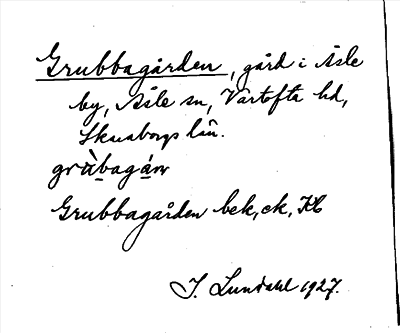 Grubbagården, gård i Åsle
by, Åsle sn, Vartofta hd,
Skaraborgs län.
grùbagáṛn
Grubbagården bek, ek, Kb
I. Lundahl 1927.